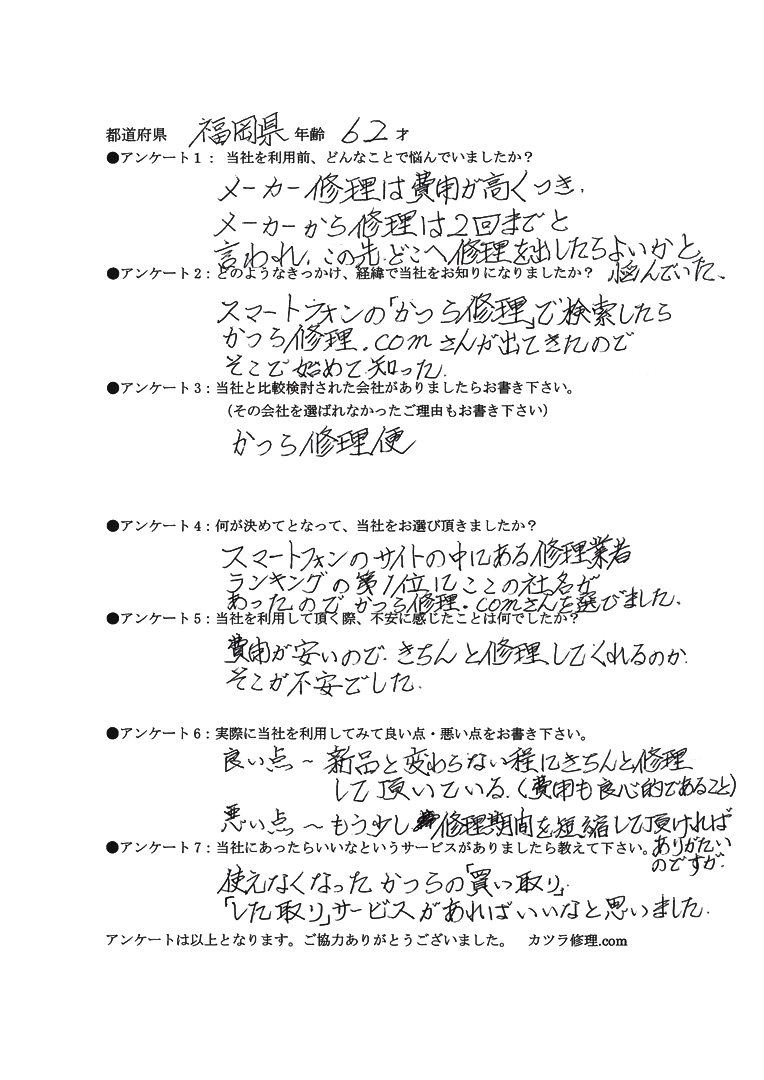 都道府県 福岡県 年齢 62 才
●アンケート1： 当社を利用前、どんなことで悩んでいましたか？
メーカー修理は費用が高くつき、
メーカーから修理は2回までと
言われ、この先、どこへ修理を出したらよいかと、
悩んでいた、
●アンケート2：どのようなきっかけ、経緯で当社をお知りになりましたか？
スマートフォンの「かつら修理」で検索したら
かつら修理.comさんが出てきたので
そこで始めて知った.
●アンケート3：当社と比較検討された会社がありましたらお書き下さい。
（その会社を選ばれなかったご理由もお書き下さい）
かつら修理便
●アンケート4：何が決めてとなって、当社をお選び頂きましたか？
スマートフォンのサイトの中にある修理業者
ランキングの第1位にここの社名が
あったので、かつら修理.comさんを選びました.
●アンケート5：当社を利用して頂く際、不安に感じたことは何でしたか？
費用が安いので、きちんと修理してくれるのか.
そこが不安でした.
●アンケート6：実際に当社を利用してみて良い点・悪い点をお書き下さい。
良い点～新品と変わらない程にきちんと修理
して頂いている.（費用も良心的であること）
悪い点～もう少し修理期間を短縮して頂ければ
ありがたい
のですが.
●アンケート7：当社にあったらいいなというサービスがありましたら教えて下さい。
使えなくなったかつらの「買い取り」.
「した取り」サービスがあればいいなと思いました.
アンケートは以上となります。ご協力ありがとうございました。 カツラ修理.com